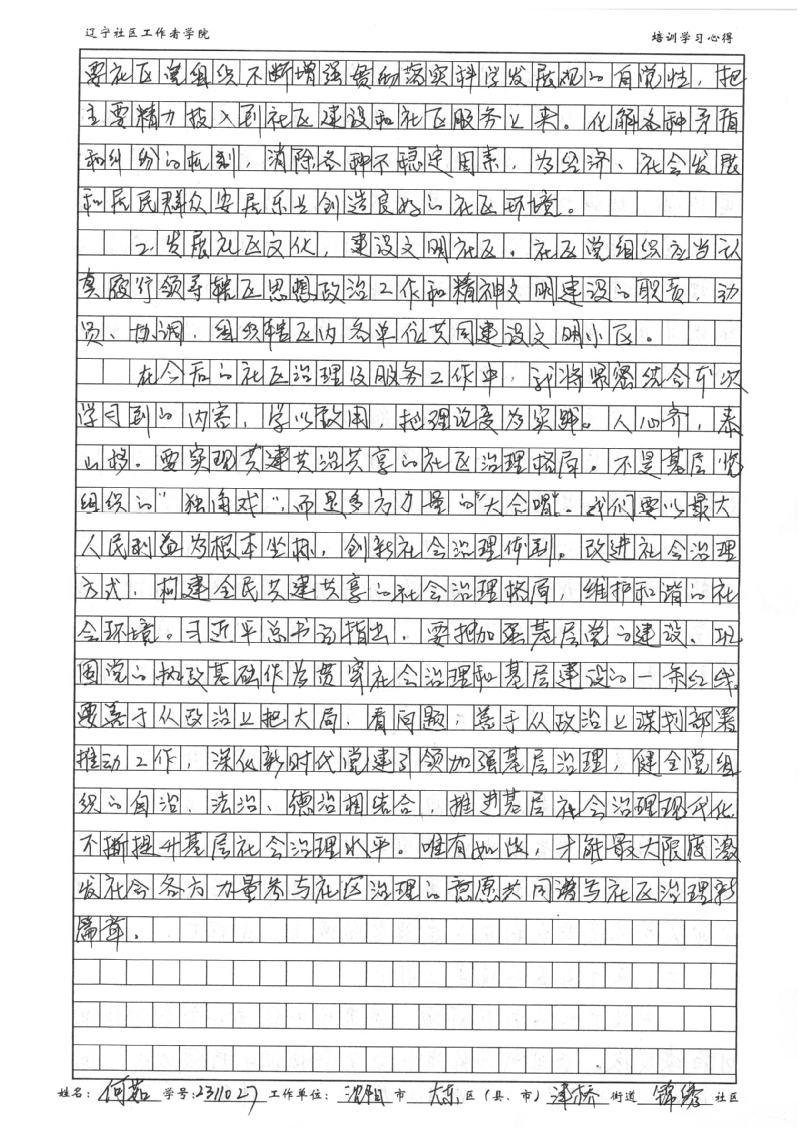 辽宁社区工作者学院 培训学习心得
要社区党组织不断增强贯彻落实科学发展观的自觉性，把
主要精力投入到社区建设和社区服务上来。化解各种矛盾
和纠纷的机制，消除各种不稳定因素，为经济、社会发展
和居民群众安居乐业创造良好的社区环境。
2.发展社区文化，建设文明社区。社区党组织应当认
真履行领导辖区思想政治工作和精神文明建设的职责，动
员、协调、组织辖区内各单位共同建设文明小区。
在今后的社区治理及服务工作中，我将紧密结合本次
学习到的内容，学以致用，把理论度为实践。人心齐，泰
山移。要实现共建共治共享的社区治理格局。不是基层党
组织的“独角戏”，而是多方力量的“大合唱”。我们要以最大
人民利益为根本坐标，创新社会治理体制。改进社会治理
方式，构建全民共建共享的社会治理格局，维护和谐的社
会环境。习近平总书记指出，要把加强基层党的建设、巩
固党的执政基础作为贯穿社会治理和基层建设的一条红线。
要善于从政治上把大局、看问题，善于从政治上谋划部署
推动工作，深化新时代党建引领加强基层治理，健全党组
织的自治、法治、德治相结合，推进基层社会治理现代化
不断提升基层社会治理水平。唯有如此，才能最大限度激
发社会各方力量参与社区治理的意愿共同谱写社区治理新
篇章。
姓名：何茹 学号：2311027 工作单位：沈阳市 大东区（县、市）津桥街道 锦绣社区